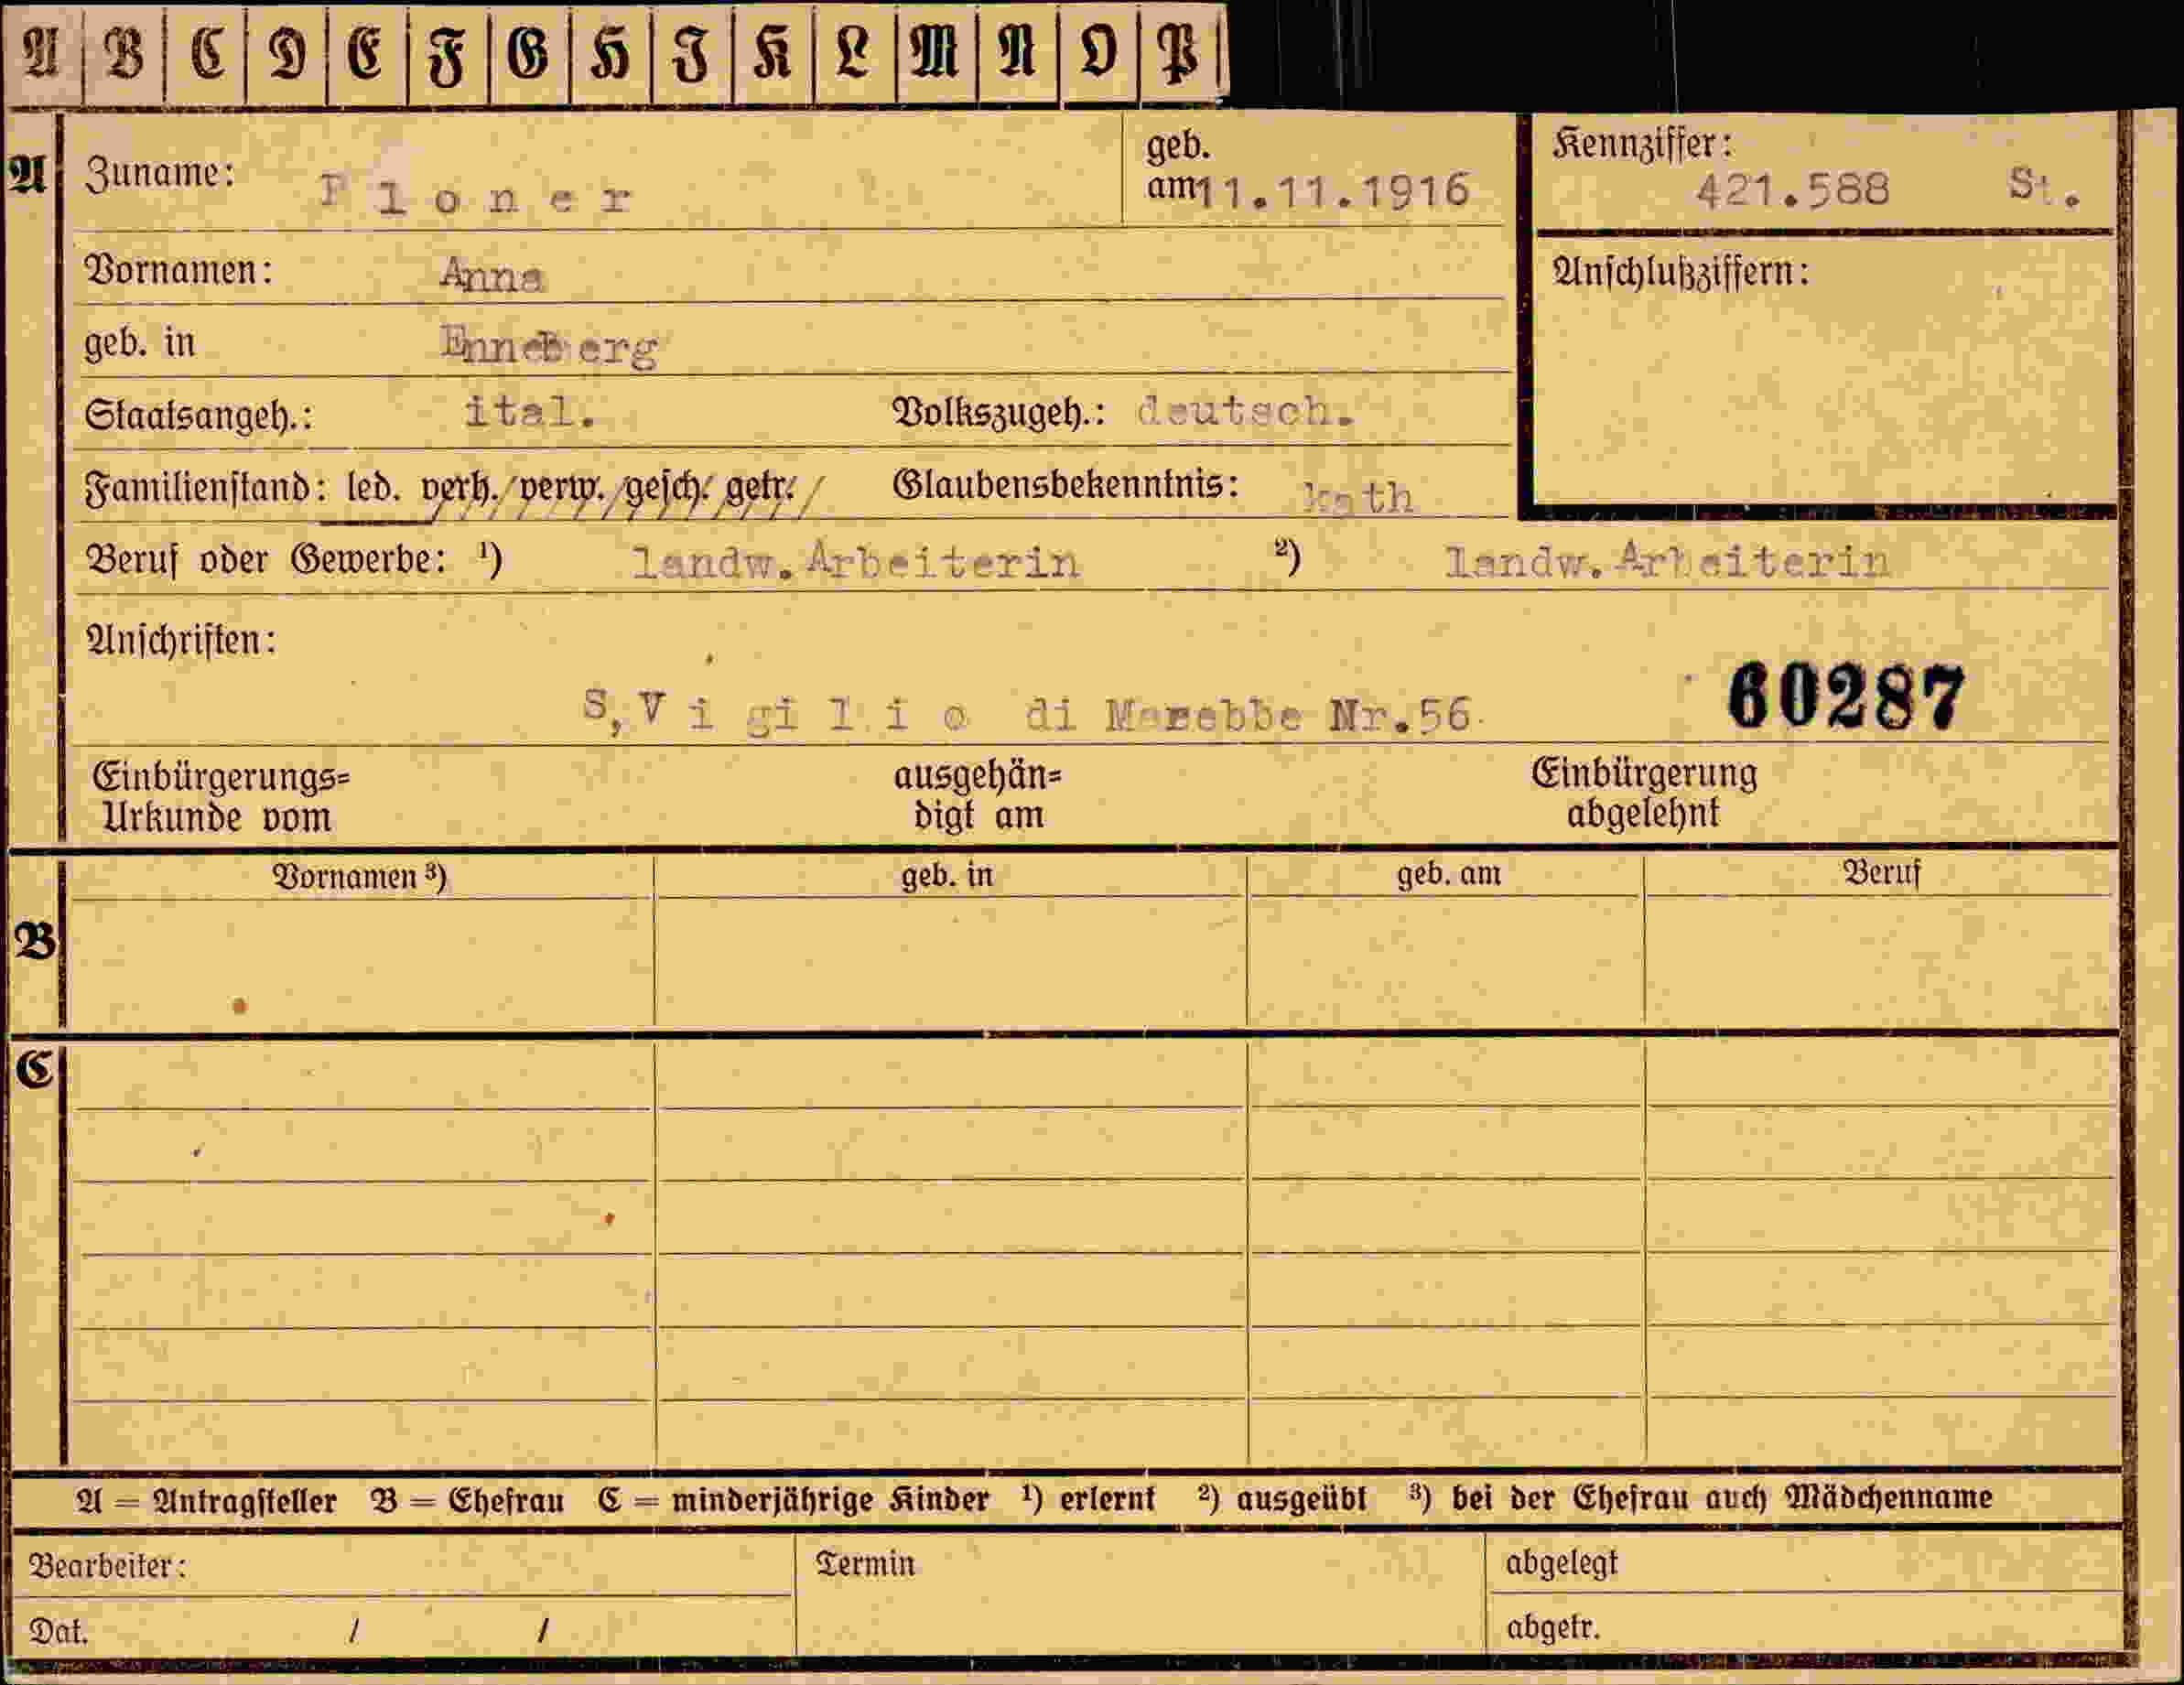 A B C D E F G H I K L M N O P
A Zuname: Ploner geb. am 11.11.1916 Kennziffer: 421.588 St.
Vornamen: Anna Anschlußziffern:
geb. in Enneberg
Staatsangeh.: ital. Volkszugeh.: deutsch.
Familienstand: led. verh. verw. gesch. getr. Glaubensbekenntnis: kath
Beruf oder Gewerbe: ¹) landw. Arbeiterin ²) landw. Arbeiterin
Anschriften:
S,Vigilio di Marebbe Nr.56. 60287
Einbürgerungs= ausgehän= Einbürgerung
Urkunde vom digt am abgelehnt
Vornamen ³) geb. in geb. am Beruf
B
C
A = Antragsteller B = Ehefrau C = minderjährige Kinder ¹) erlernt ²) ausgeübt ³) bei der Ehefrau auch Mädchenname
Bearbeiter: Termin abgelegt
Dat. / / abgetr.